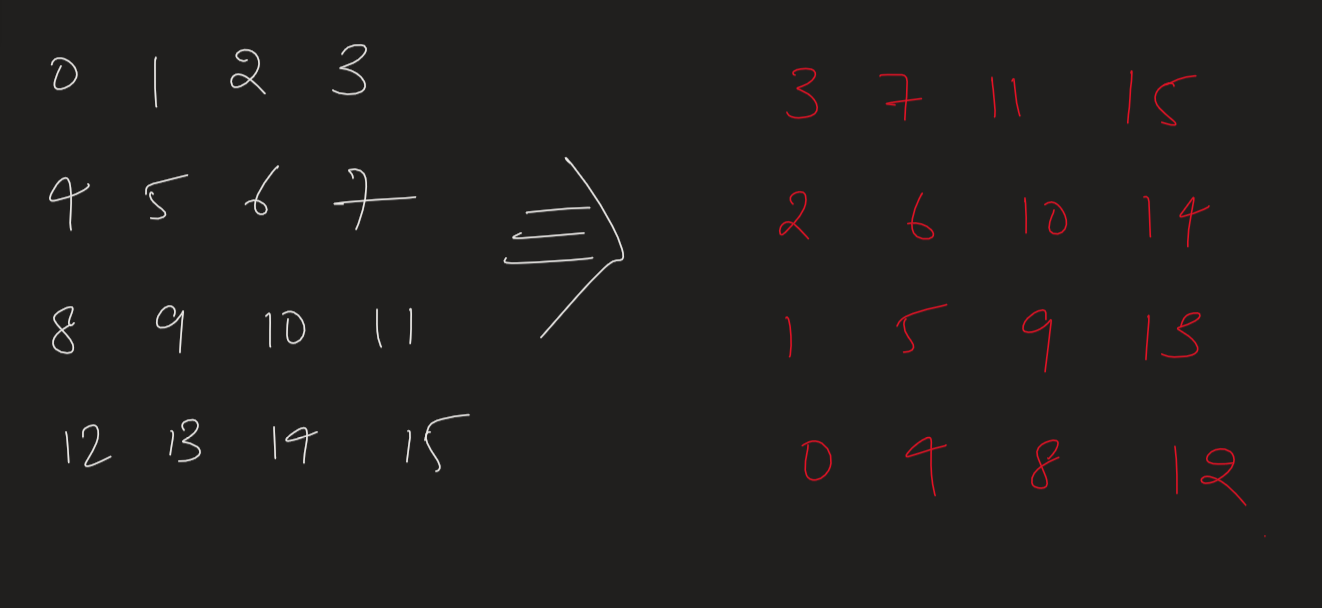 0 1 2 3
4 5 6 7
8 9 10 11
12 13 14 15
⇒
3 7 11 15
2 6 10 14
1 5 9 13
0 4 8 12